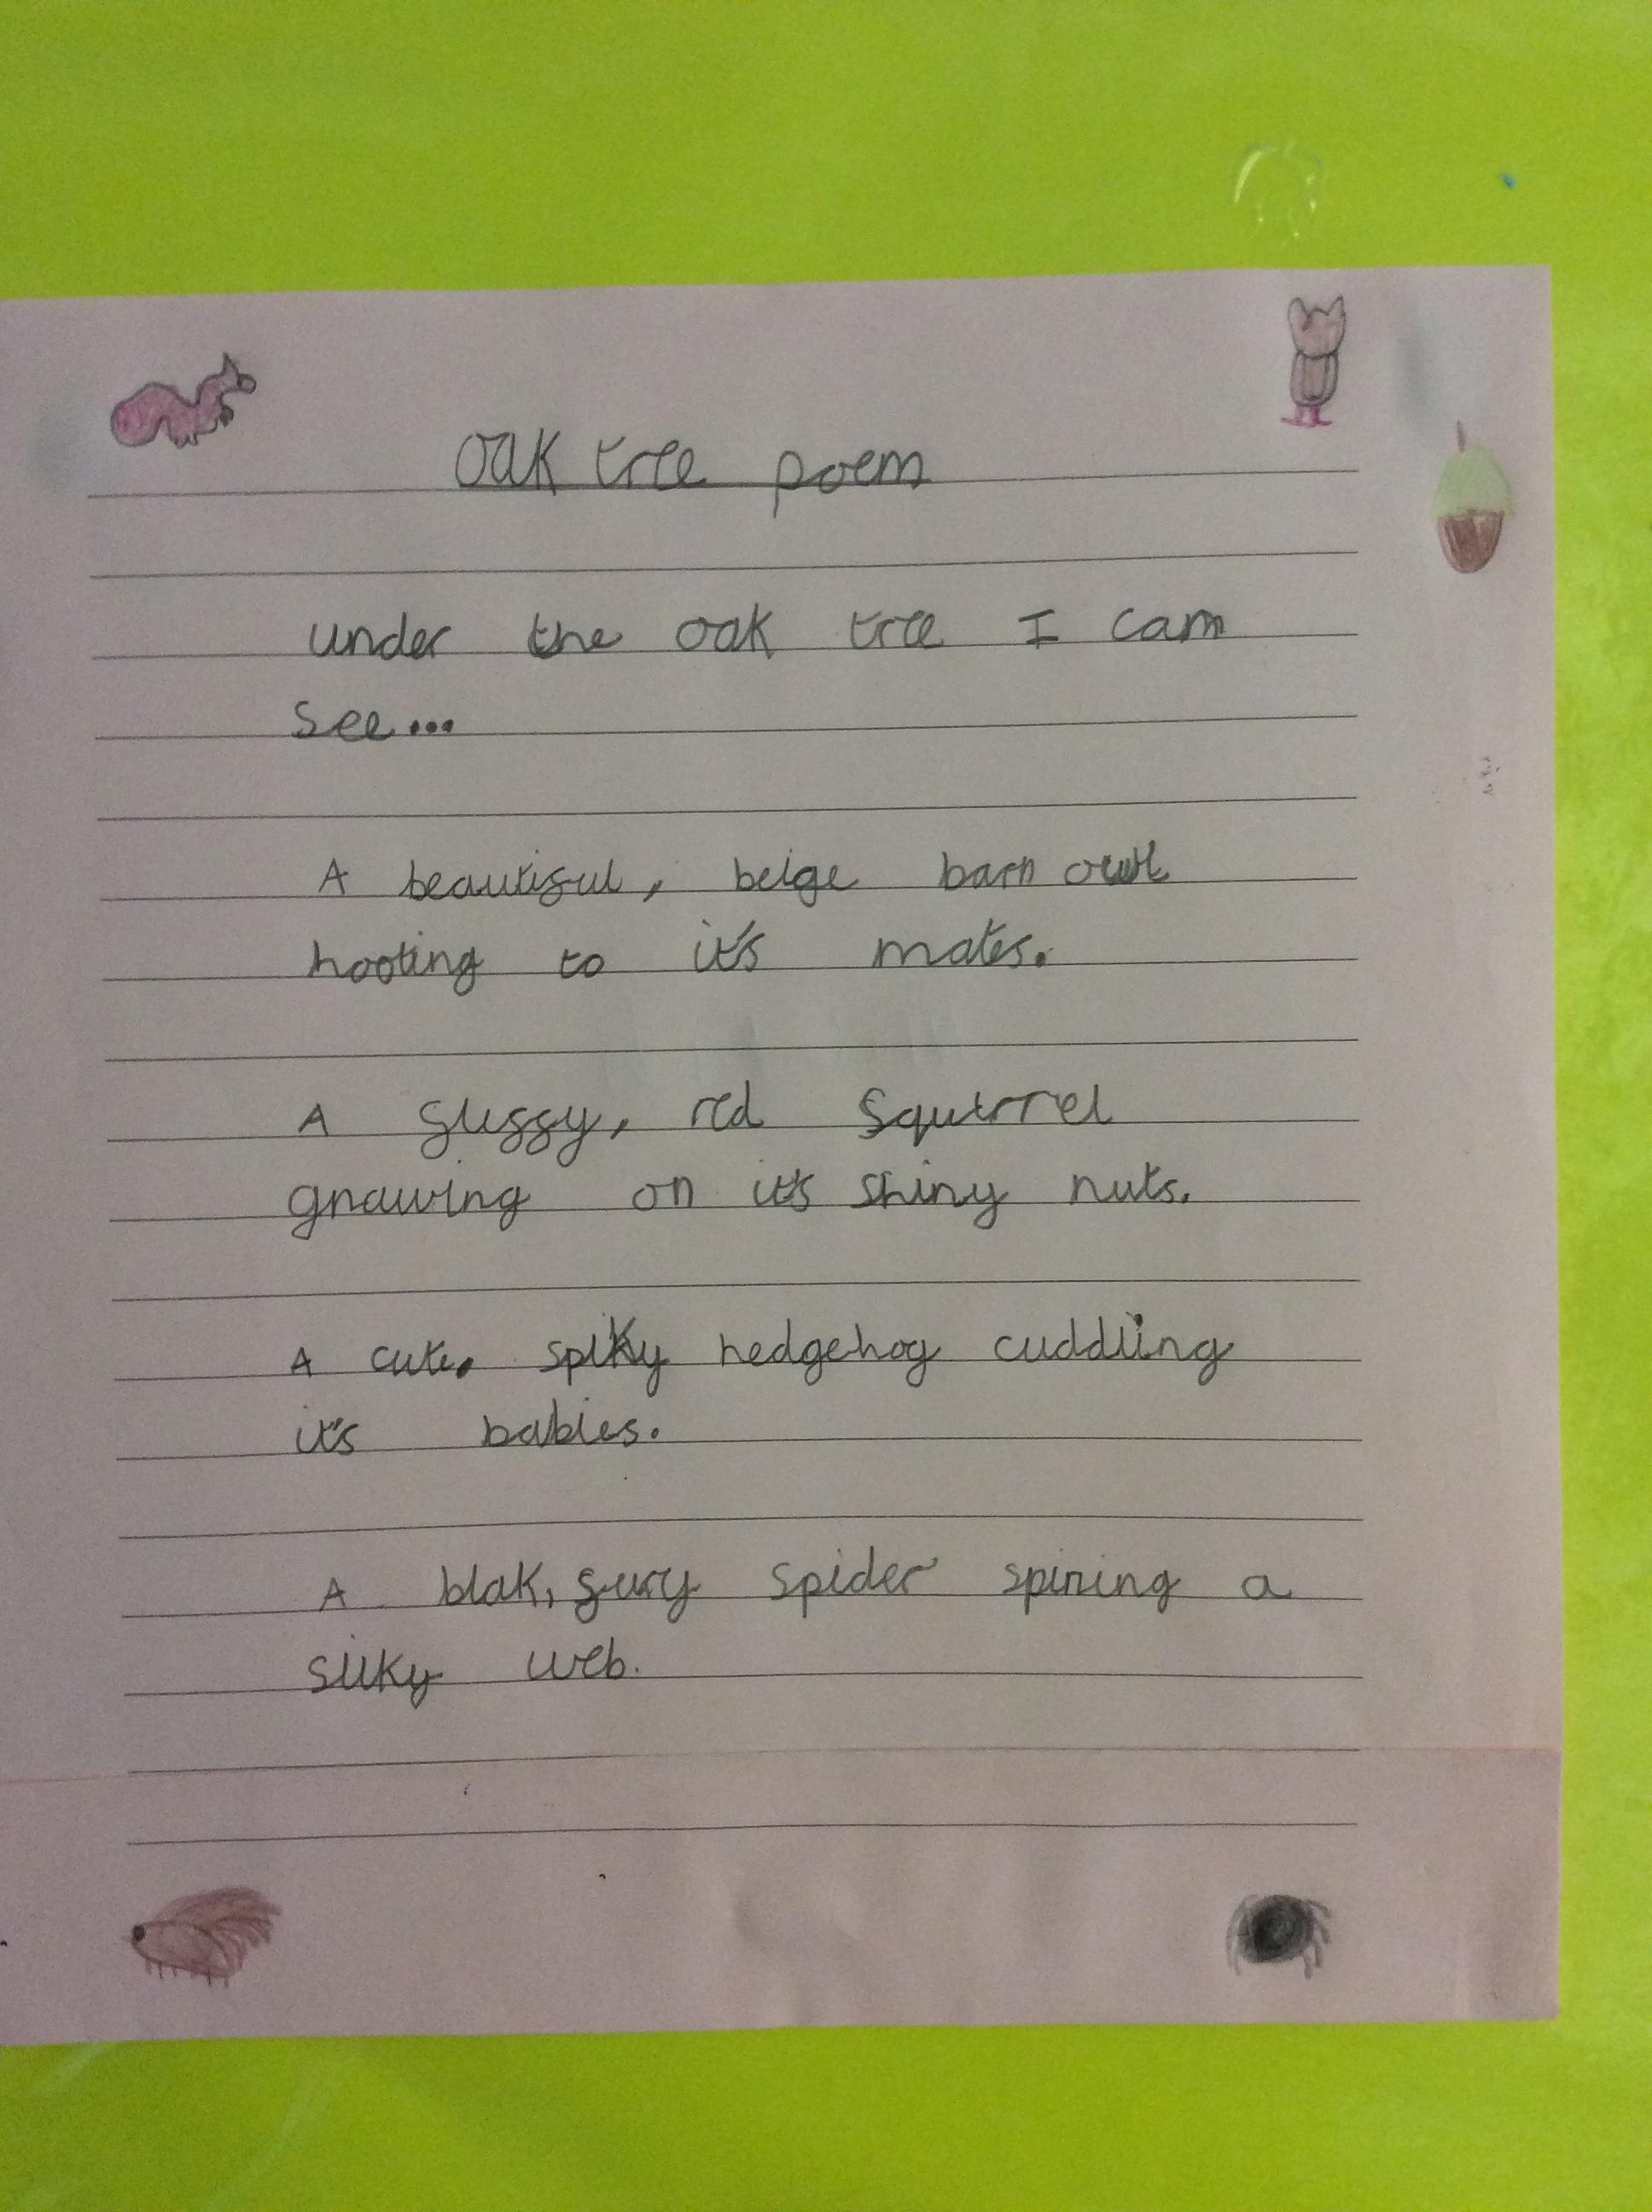 oak tree poem
under the oak tree I cam
see...
A beautiful, beige barn owl
hooting to it's mates.
A fluffy, red squirrel
gnawing on it's shiny nuts.
A cute, spiky hedgehog cuddling
it's babies.
A blak, fury spider spining a
silky web.